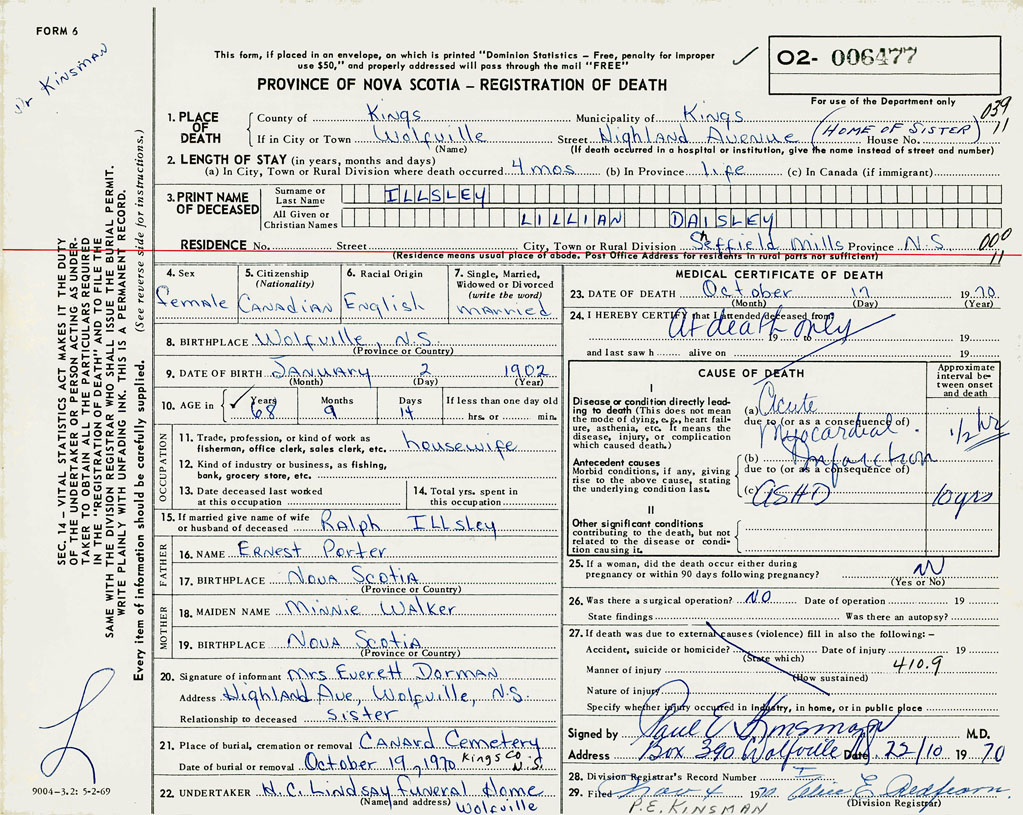 FORM 6
Dr Kinsman
This form, if placed in an envelope, on which is printed "Dominion Statistics – Free, penalty for improper
use $50," and properly addressed will pass through the mail "FREE"
✓
O2- 006477
PROVINCE OF NOVA SCOTIA – REGISTRATION OF DEATH
For use of the Department only
039
11
1. PLACE OF DEATH
County of Kings Municipality of Kings
If in City or Town Wolfville Street Highland Avenue (HOME OF SISTER) House No.
(Name) (If death occurred in a hospital or institution, give the name instead of street and number)
2. LENGTH OF STAY (in years, months and days)
(a) In City, Town or Rural Division where death occurred 4 mos (b) In Province life (c) In Canada (if immigrant)
3. PRINT NAME OF DECEASED
Surname or Last Name ILLSLEY
All Given or Christian Names LILLIAN DAISLEY
RESIDENCE No. Street City, Town or Rural Division Sheffield Mills Province N.S. 000
11
(Residence means usual place of abode. Post Office Address for residents in rural parts not sufficient)
4. Sex
female
5. Citizenship
(Nationality)
Canadian
6. Racial Origin
English
7. Single, Married,
Widowed or Divorced
(write the word)
married
8. BIRTHPLACE Wolfville, N.S.
(Province or Country)
9. DATE OF BIRTH January 2 1902
(Month) (Day) (Year)
10. AGE in ✓ Years Months Days If less than one day old
68 9 14 hrs. or min.
OCCUPATION
11. Trade, profession, or kind of work as
fisherman, office clerk, sales clerk, etc. housewife
12. Kind of industry or business, as fishing,
bank, grocery store, etc.
13. Date deceased last worked
at this occupation
14. Total yrs. spent in
this occupation
15. If married give name of wife
or husband of deceased Ralph Illsley
FATHER
16. NAME Ernest Porter
17. BIRTHPLACE Nova Scotia
(Province or Country)
MOTHER
18. MAIDEN NAME Minnie Walker
19. BIRTHPLACE Nova Scotia
(Province or Country)
20. Signature of informant Mrs Everett Dorman
Address Highland Ave, Wolfville, N.S.
Relationship to deceased sister
21. Place of burial, cremation or removal Canard Cemetery
Date of burial or removal October 19, 1970 Kings Co N.S.
22. UNDERTAKER H.C. Lindsay Funeral Home
(Name and address) Wolfville
MEDICAL CERTIFICATE OF DEATH
23. DATE OF DEATH October 17 1970
(Month) (Day) (Year)
24. I HEREBY CERTIFY that I attended deceased from
At death only
19 to 19
and last saw h alive on 19
CAUSE OF DEATH
Approximate
interval be-
tween onset
and death
I
Disease or condition directly lead-
ing to death (This does not mean
the mode of dying, e.g., heart fail-
ure, asthenia, etc. It means the
disease, injury, or complication
which caused death.)
(a) Acute
due to (or as a consequence of)
Myocardial 1/2 hr
Antecedent causes
Morbid conditions, if any, giving
rise to the above cause, stating
the underlying condition last.
(b) Infarction
due to (or as a consequence of)
(c) ASHD 10 yrs
II
Other significant conditions
contributing to the death, but not
related to the disease or condi-
tion causing it.
25. If a woman, did the death occur either during
pregnancy or within 90 days following pregnancy?
(Yes or No)
26. Was there a surgical operation? NO Date of operation 19
State findings Was there an autopsy?
27. If death was due to external causes (violence) fill in also the following: –
Accident, suicide or homicide? Date of injury 19
(State which)
410.9
Manner of injury
(How sustained)
Nature of injury
Specify whether injury occurred in industry, in home, or in public place
Signed by Paul E Kinsman M.D.
Address Box 390 Wolfville Date 22/10 1970
28. Division Registrar's Record Number
29. Filed Nov 4 1970
(Division Registrar)
P.E. KINSMAN
SEC. 14 – VITAL STATISTICS ACT MAKES IT THE DUTY
OF THE UNDERTAKER OR PERSON ACTING AS UNDER-
TAKER TO OBTAIN ALL THE PARTICULARS REQUIRED
IN THE "REGISTRATION OF DEATH" AND TO FILE THE
SAME WITH THE DIVISION REGISTRAR WHO SHALL ISSUE THE BURIAL PERMIT.
WRITE PLAINLY WITH UNFADING INK. THIS IS A PERMANENT RECORD.
Every item of information should be carefully supplied. (See reverse side for instructions.)
9004-3.2: 5-2-69